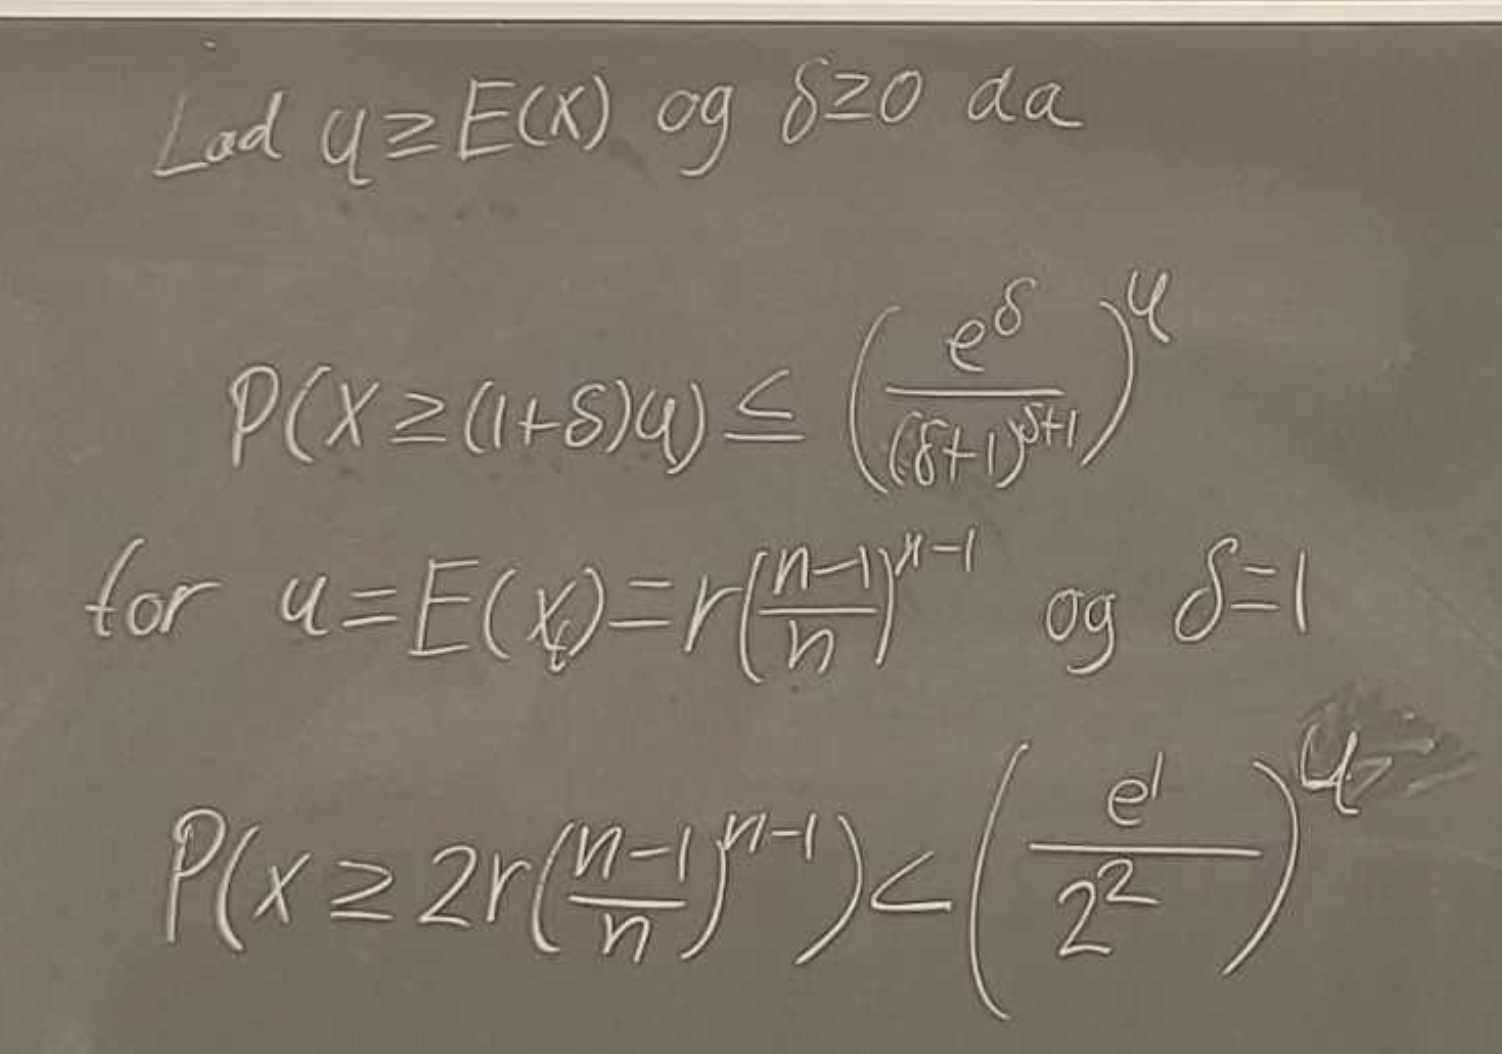 Lad u ≥ E(X) og δ ≥ 0 da
P(X ≥ (1+δ)u) ≤ (e^δ / (δ+1)^(δ+1))^u
for u = E(X) = r((n-1)/n)^(n-1) og δ = 1
P(x ≥ 2r((n-1)/n)^(n-1)) < (e^1 / 2^2)^u